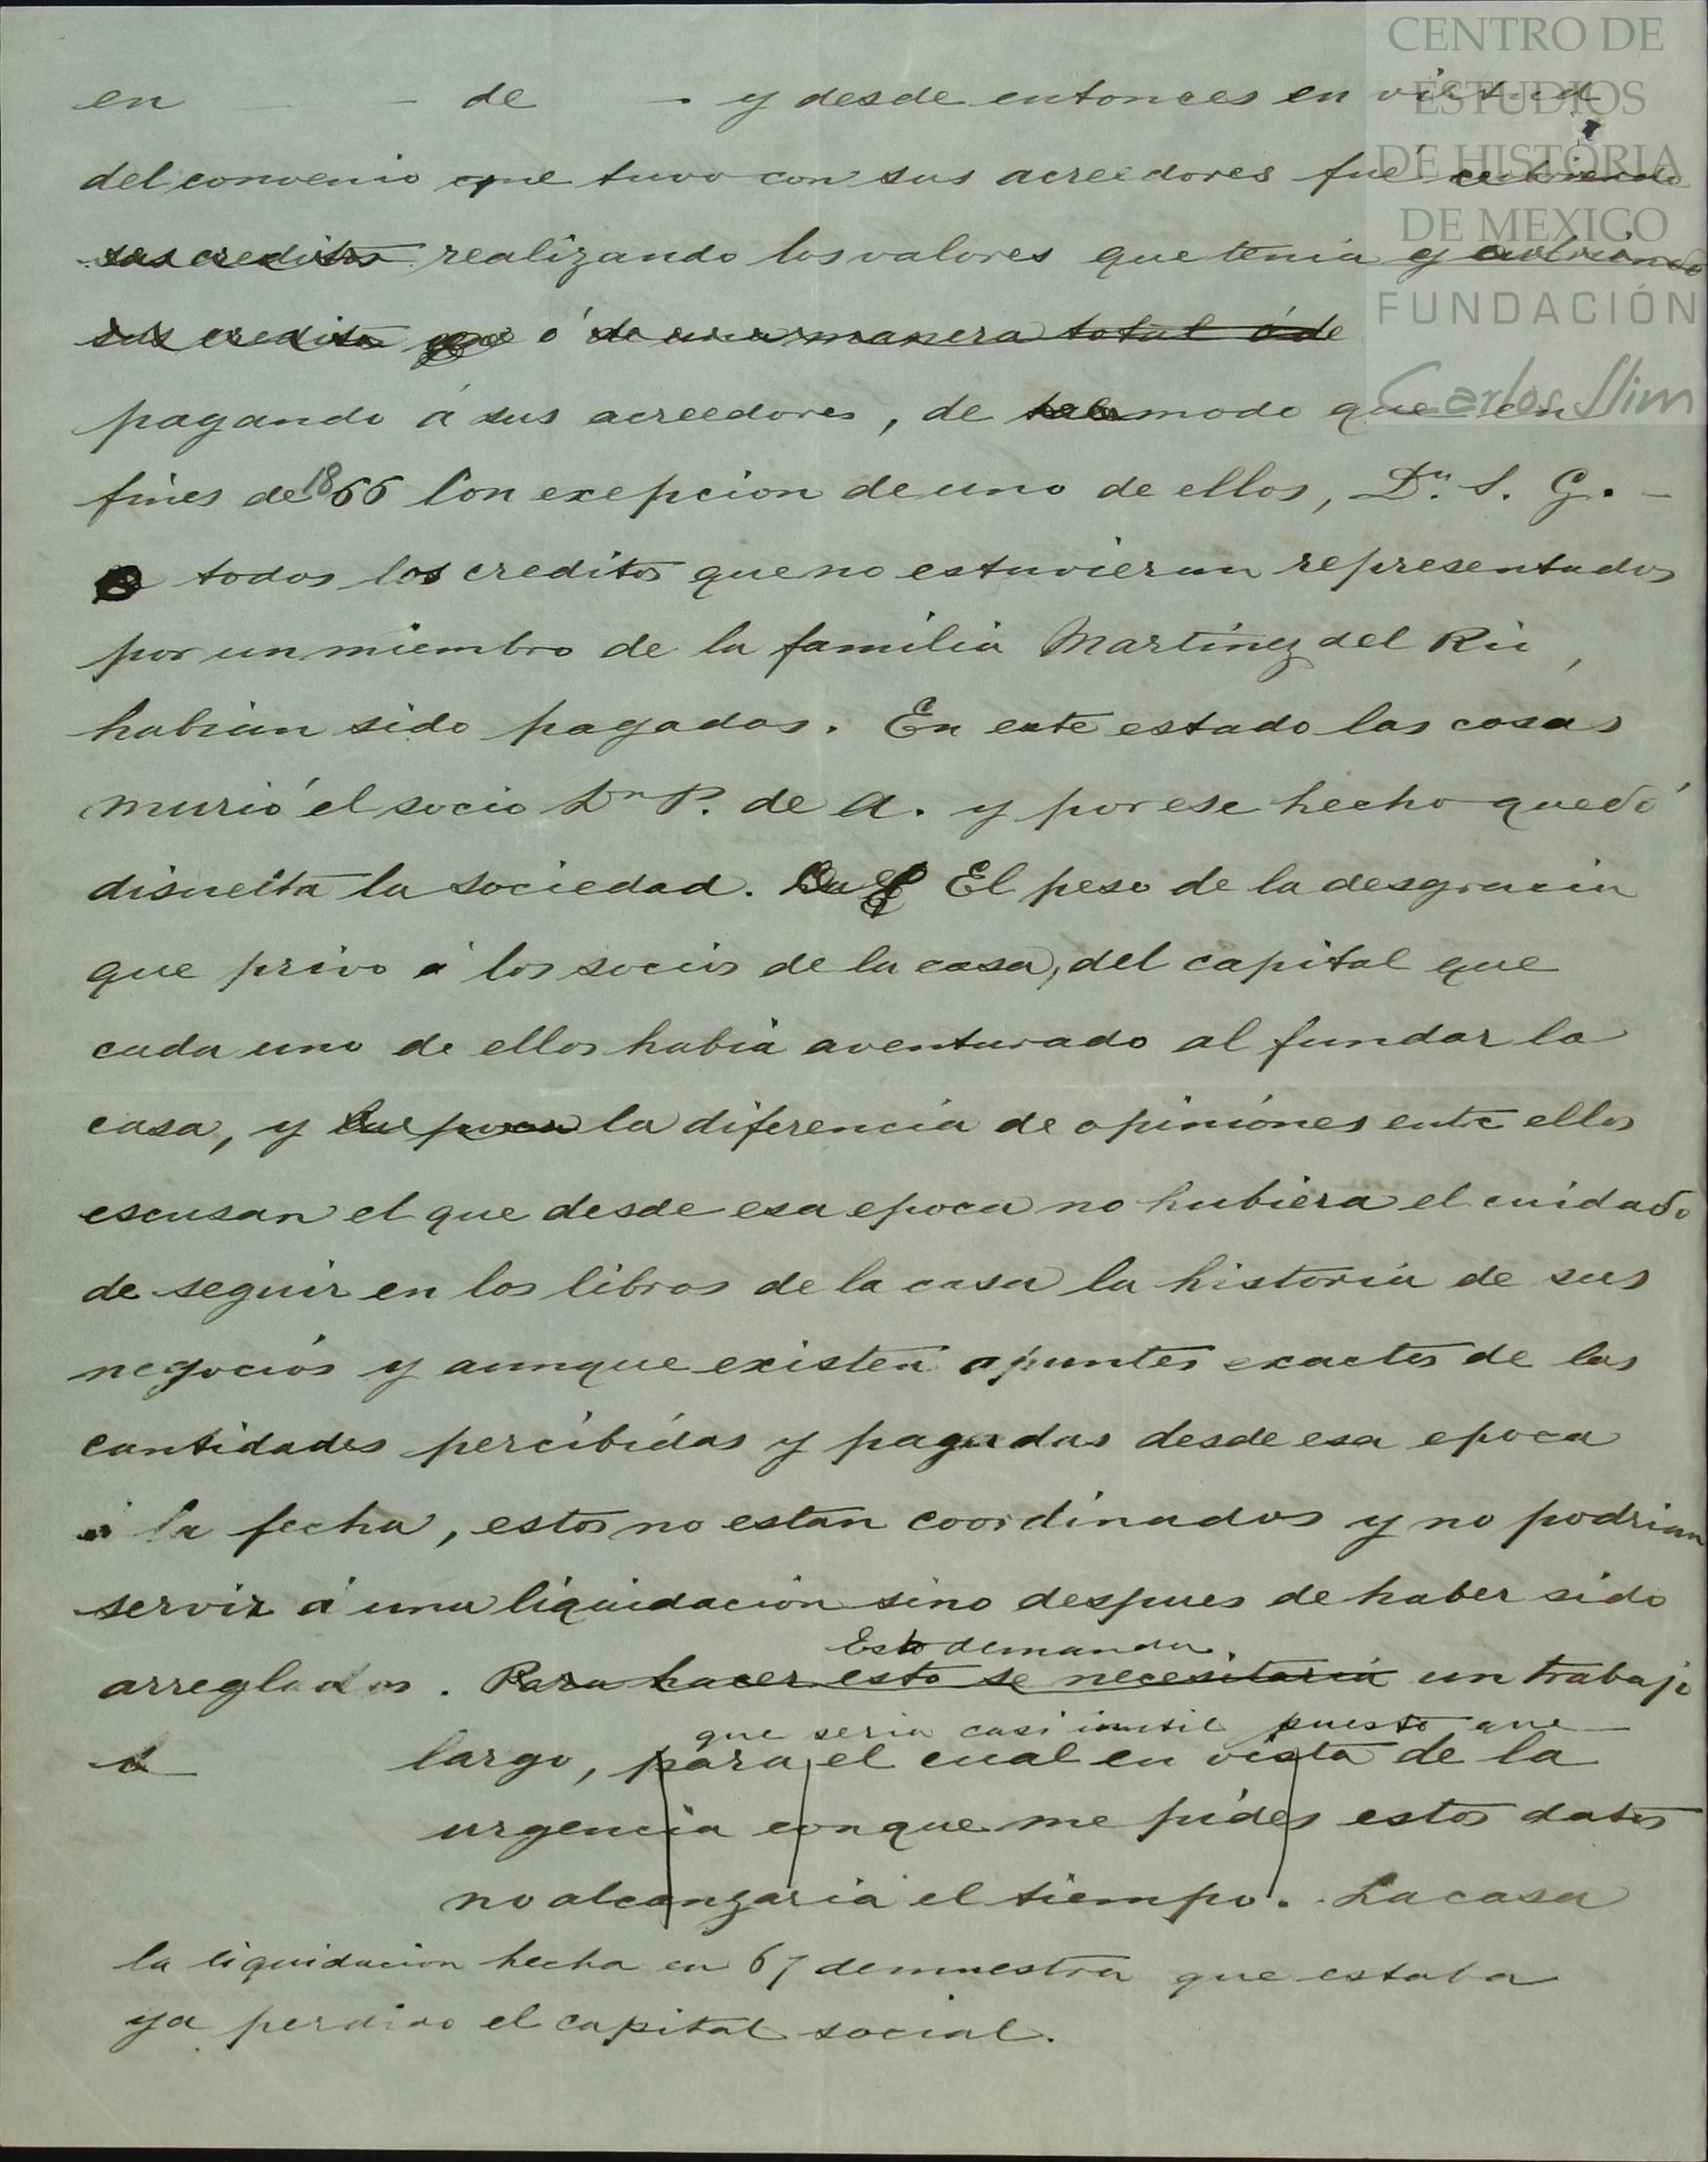 en de y desde entonces en virtud
del convenio que tuvo con sus acreedores fué cubriendo
sus creditos realizando los valores que tenia y cubriendo
sus creditos ó de una manera total ó de
pagando á sus acreedores, de modo que en
fines de 1866 con exepcion de uno de ellos, Dn. S. G.
todos los creditos que no estuvieran representados
por un miembro de la familia Martinez del Rio,
habian sido pagados. En este estado las cosas
murió el socio Dn P. de A. y por ese hecho quedó
disuelta la sociedad. El peso de la desgracia
que privo á los socios de la casa, del capital que
cada uno de ellos habia aventurado al fundar la
casa, y la diferencia de opiniones entre ellos
escusan el que desde esa epoca no hubiera el cuidado
de seguir en los libros de la casa la historia de sus
negocios y aunque existen apuntes exactos de las
cantidades percibidas y pagadas desde esa epoca
á la fecha, estos no estan coordinados y no podrian
servir á una liquidacion sino despues de haber sido
Esto demanda
arreglados. Para hacer esto se necesitaria un trabajo
que seria casi inutil puesto que
largo, para el cual en vista de la
urgencia con que me pides estos datos
no alcanzaria el tiempo. La casa
la liquidacion hecha en 67 demuestra que estaba
ya perdido el capital social.
CENTRO DE
ESTUDIOS
DE HISTORIA
DE MEXICO
FUNDACIÓN
Carlos Slim